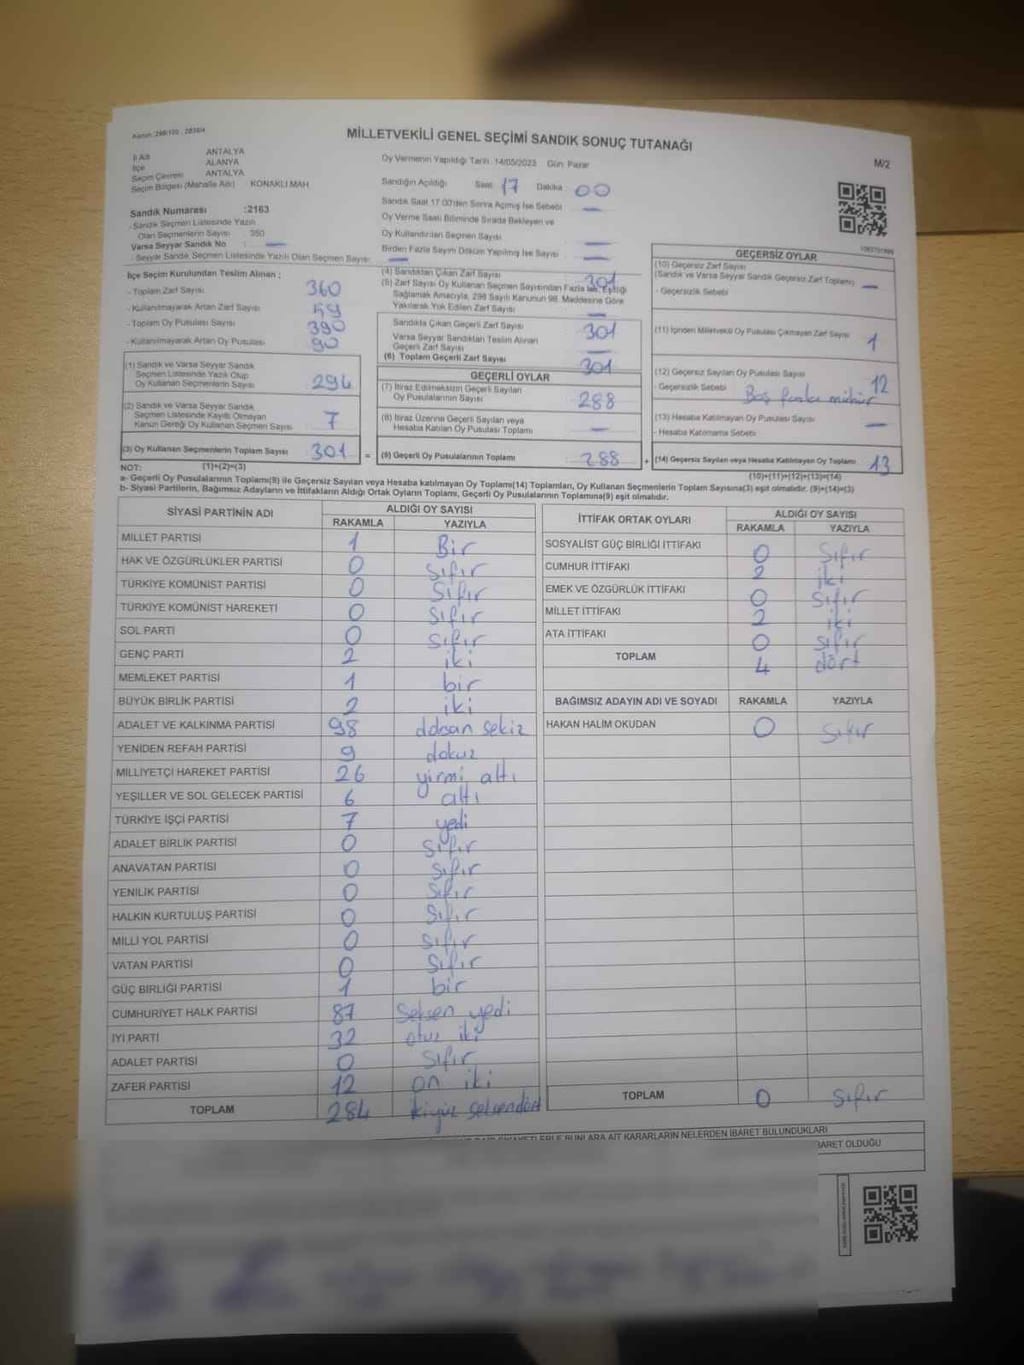 Kanun: 298/105 , 2839/4
MİLLETVEKİLİ GENEL SEÇİMİ SANDIK SONUÇ TUTANAĞI
M/2
İl Adı ANTALYA
İlçe ALANYA
Seçim Çevresi ANTALYA
Seçim Bölgesi (Mahalle Adı) KONAKLI MAH
Sandık Numarası :2163
- Sandık Seçmen Listesinde Yazılı
Olan Seçmenlerin Sayısı 350
Varsa Seyyar Sandık No : —
- Seyyar Sandık Seçmen Listesinde Yazılı Olan Seçmen Sayısı: —
Oy Vermenin Yapıldığı Tarih :14/05/2023 Gün: Pazar
Sandığın Açıldığı Saat 17 Dakika 00
Sandık Saat 17:00'den Sonra Açılmış İse Sebebi —
Oy Verme Saati Bitiminde Sırada Bekleyen ve
Oy Kullandırılan Seçmen Sayısı —
Birden Fazla Sayım Döküm Yapılmış İse Sayısı —
İlçe Seçim Kurulundan Teslim Alınan ;
- Toplam Zarf Sayısı 360
- Kullanılmayarak Artan Zarf Sayısı 59
- Toplam Oy Pusulası Sayısı 390
- Kullanılmayarak Artan Oy Pusulası 90
(1) Sandık ve Varsa Seyyar Sandık
Seçmen Listesinde Yazılı Olup
Oy Kullanan Seçmenlerin Sayısı 294
(2) Sandık ve Varsa Seyyar Sandık
Seçmen Listesinde Kayıtlı Olmayan
Kanun Gereği Oy Kullanan Seçmen Sayısı 7
(3) Oy Kullanan Seçmenlerin Toplam Sayısı 301
(1)+(2)=(3)
(4) Sandıktan Çıkan Zarf Sayısı 301
(5) Zarf Sayısı Oy Kullanan Seçmen Sayısından Fazla ise, Eşitliği
Sağlamak Amacıyla, 298 Sayılı Kanunun 98. Maddesine Göre
Yakılarak Yok Edilen Zarf Sayısı —
Sandıkta Çıkan Geçerli Zarf Sayısı 301
Varsa Seyyar Sandıktan Teslim Alınan
Geçerli Zarf Sayısı —
(6) Toplam Geçerli Zarf Sayısı 301
GEÇERLİ OYLAR
(7) İtiraz Edilmeksizin Geçerli Sayılan
Oy Pusulalarının Sayısı 288
(8) İtiraz Üzerine Geçerli Sayılan veya
Hesaba Katılan Oy Pusulası Toplamı —
= (9) Geçerli Oy Pusulalarının Toplamı 288 +
GEÇERSİZ OYLAR
(10) Geçersiz Zarf Sayısı
(Sandık ve Varsa Seyyar Sandık Geçersiz Zarf Toplamı) —
- Geçersizlik Sebebi
(11) İçinden Milletvekili Oy Pusulası Çıkmayan Zarf Sayısı 1
(12) Geçersiz Sayılan Oy Pusulası Sayısı 12
- Geçersizlik Sebebi Boş fazla mühür
(13) Hesaba Katılmayan Oy Pusulası Sayısı —
- Hesaba Katılmama Sebebi
(14) Geçersiz Sayılan veya Hesaba Katılmayan Oy Toplamı 13
(10)+(11)+(12)+(13)=(14)
NOT:
a- Geçerli Oy Pusulalarının Toplamı(9) ile Geçersiz Sayılan veya Hesaba katılmayan Oy Toplamı(14) Toplamları, Oy Kullanan Seçmenlerin Toplam Sayısına(3) eşit olmalıdır. (9)+(14)=(3)
b- Siyasi Partilerin, Bağımsız Adayların ve İttifakların Aldığı Ortak Oyların Toplamı, Geçerli Oy Pusulalarının Toplamına(9) eşit olmalıdır.
SİYASİ PARTİNİN ADI ALDIĞI OY SAYISI
RAKAMLA YAZIYLA
MİLLET PARTİSİ 1 Bir
HAK VE ÖZGÜRLÜKLER PARTİSİ 0 Sıfır
TÜRKİYE KOMÜNİST PARTİSİ 0 Sıfır
TÜRKİYE KOMÜNİST HAREKETİ 0 Sıfır
SOL PARTİ 0 Sıfır
GENÇ PARTİ 2 iki
MEMLEKET PARTİSİ 1 bir
BÜYÜK BİRLİK PARTİSİ 2 iki
ADALET VE KALKINMA PARTİSİ 98 doksan sekiz
YENİDEN REFAH PARTİSİ 9 dokuz
MİLLİYETÇİ HAREKET PARTİSİ 26 yirmi altı
YEŞİLLER VE SOL GELECEK PARTİSİ 6 altı
TÜRKİYE İŞÇİ PARTİSİ 7 yedi
ADALET BİRLİK PARTİSİ 0 Sıfır
ANAVATAN PARTİSİ 0 Sıfır
YENİLİK PARTİSİ 0 Sıfır
HALKIN KURTULUŞ PARTİSİ 0 Sıfır
MİLLİ YOL PARTİSİ 0 Sıfır
VATAN PARTİSİ 0 Sıfır
GÜÇ BİRLİĞİ PARTİSİ 1 bir
CUMHURİYET HALK PARTİSİ 87 Seksen yedi
İYİ PARTİ 32 otuz iki
ADALET PARTİSİ 0 Sıfır
ZAFER PARTİSİ 12 on iki
TOPLAM 284 ikiyüz seksendört
İTTİFAK ORTAK OYLARI ALDIĞI OY SAYISI
RAKAMLA YAZIYLA
SOSYALİST GÜÇ BİRLİĞİ İTTİFAKI 0 Sıfır
CUMHUR İTTİFAKI 2 iki
EMEK VE ÖZGÜRLÜK İTTİFAKI 0 Sıfır
MİLLET İTTİFAKI 2 iki
ATA İTTİFAKI 0 Sıfır
TOPLAM 4 dört
BAĞIMSIZ ADAYIN ADI VE SOYADI RAKAMLA YAZIYLA
HAKAN HALİM OKUDAN 0 Sıfır
TOPLAM 0 Sıfır
BUNLARA AİT KARARLARIN NELERDEN İBARET BULUNDUKLARI
İBARET OLDUĞU